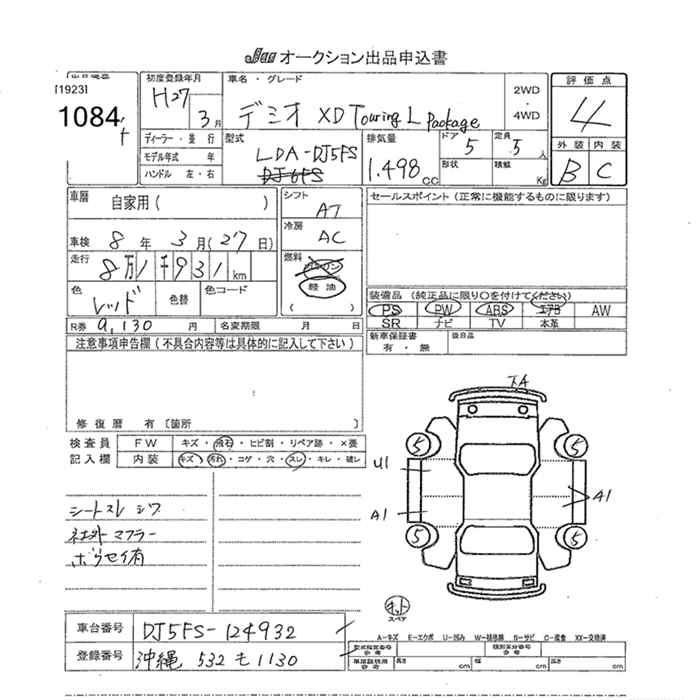 JAA オークション出品申込書
出品番号
[1923]
1084
初度登録年月
H27
3月
車名・グレード
デミオ XD Touring L Package
2WD
・
4WD
評価点
4
外装 内装
B C
ディーラー・並行
モデル年式 年
ハンドル 左・右
型式
LDA-DJ5FS
DJ6FS
排気量
1.498cc
ドア
5
定員
5人
形状
積載
Kg
車歴
自家用( )
シフト
AT
冷房
AC
車検 8年 3月(27日)
走行 8万1千931km
燃料
ガソリン
軽油
( )
色
レッド
色替
色コード
R券 9,130円
名変期限 月 日
セールスポイント(正常に機能するものに限ります)
装備品(純正品に限り○を付けてください)
PS PW ABS エアB AW
SR ナビ TV 本革
新車保証書
有・無
後日品
注意事項申告欄(不具合内容等は具体的に記入して下さい)
修復歴 有〔箇所 〕
検査員 FW キズ・飛石・ヒビ割・リペア跡・×要
記入欄 内装 キズ・汚れ・コゲ・穴・スレ・キレ・破レ
シートスレ シワ
社外マフラー
ボウセイ有
下A
5 5
U1
A1
A1
5 5
スペア
車台番号 DJ5FS-124932
登録番号 沖縄 532 も 1130
A-キズ E-エクボ U-凹み W-補修跡 S-サビ C-腐食 XX-交換済
型式指定番号
類別区分番号
長さ cm 幅 cm 高さ cm